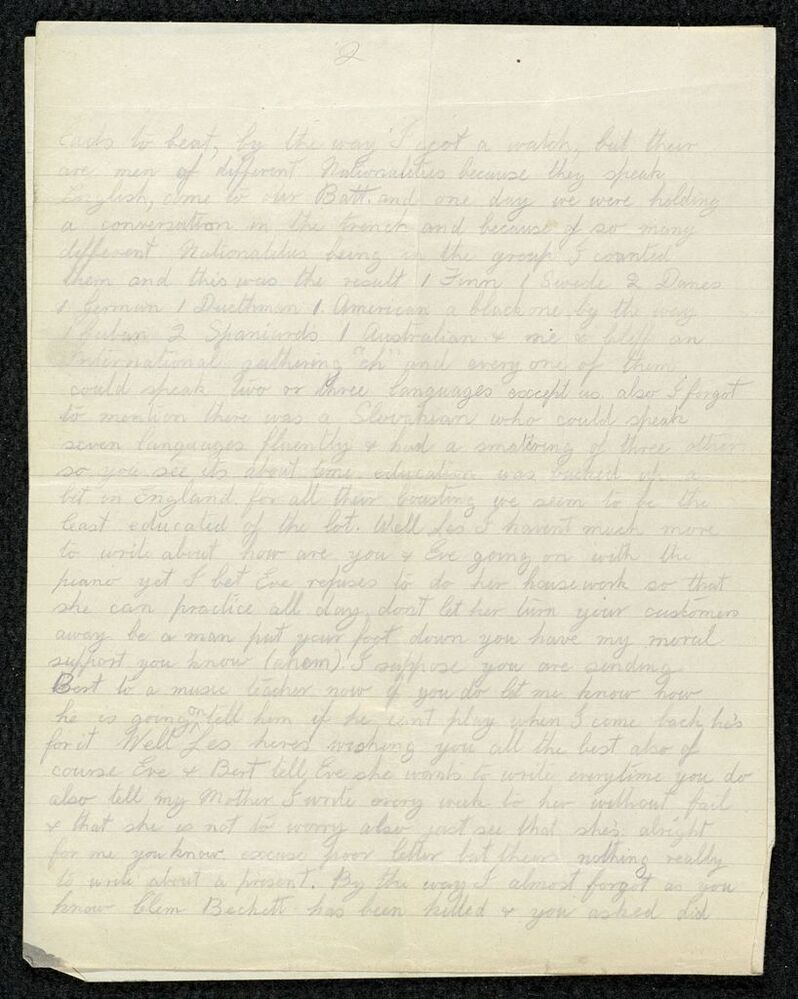 2
cards to beat, by the way I got a watch, but their
are men of different Nationalities because they speak
English, come to our Batt. and one day we were holding
a conversation in the trench and because of so many
different Nationalities being in the group I counted
them and this was the result 1 Finn 1 Swede 2 Danes
1 German 1 Ducthman 1 American a black one by the way
1 Cuban 2 Spaniards 1 Australian & me & Cliff an
International gathering "eh" and every one of them
could speak two or three languages except us. also I forgot
to mention there was a Slovakian who could speak
seven languages fluently & had a smattering of three others
so you see its about time education was bucked up a
bit in England for all their boasting we seem to be the
least educated of the lot. Well Les I havent much more
to write about how are you & Eve going on with the
piano yet I bet Eve refuses to do her housework so that
she can practice all day, dont let her turn your customers
away be a man put your foot down you have my moral
support you know (ahem) I suppose you are sending
Bert to a music teacher now if you do let me know how
he is going on tell him if he cant play when I come back he's
for it Well Les heres wishing you all the best also of
course Eve & Bert tell Eve she wants to write everytime you do
also tell my Mother I write every week to her without fail
& that she is not to worry also just see that she's alright
for me you know. excuse poor letter but theirs nothing really
to write about a present. By the way I almost forgot as you
know Clem Beckett has been killed & you asked did